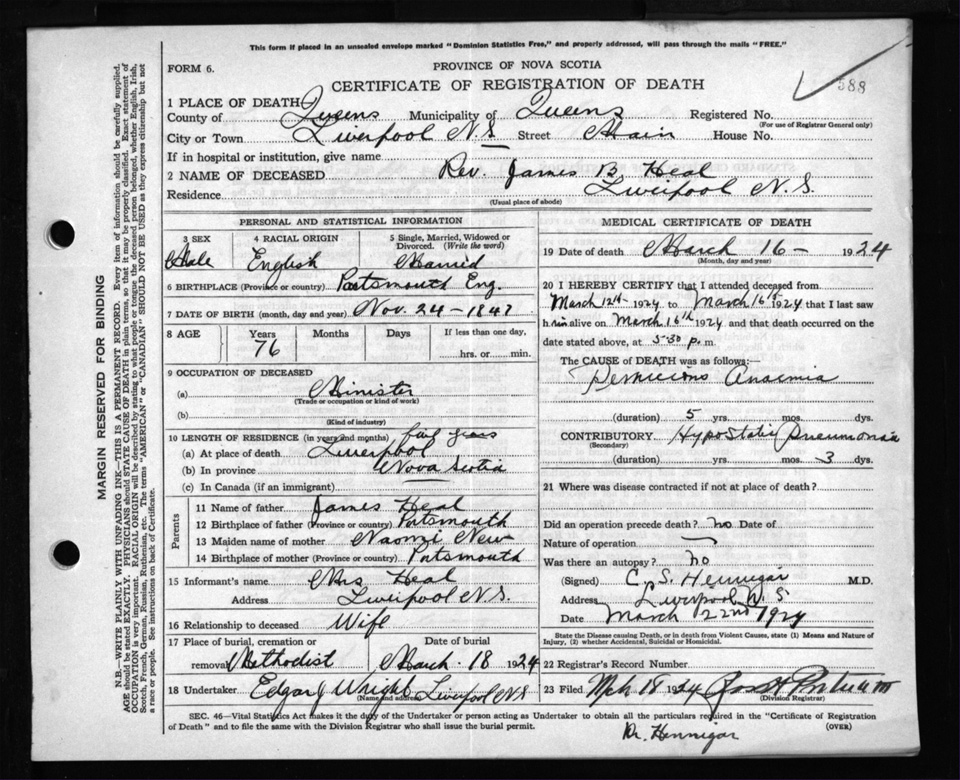 This form if placed in an unsealed envelope marked "Dominion Statistics Free," and properly addressed, will pass through the mails "FREE."
FORM 6.
PROVINCE OF NOVA SCOTIA
CERTIFICATE OF REGISTRATION OF DEATH
588
1 PLACE OF DEATH
County of Queens Municipality of Queens Registered No.
(For use of Registrar General only)
City or Town Liverpool N.S Street Main House No.
If in hospital or institution, give name
2 NAME OF DECEASED Rev. James B Heal
Residence Liverpool N.S.
(Usual place of abode)
PERSONAL AND STATISTICAL INFORMATION
3 SEX
Male
4 RACIAL ORIGIN
English
5 Single, Married, Widowed or
Divorced. (Write the word)
Married
6 BIRTHPLACE (Province or country) Portsmouth Eng.
7 DATE OF BIRTH (month, day and year) Nov. 24-1847
8 AGE Years Months Days If less than one day,
76 hrs. or min.
9 OCCUPATION OF DECEASED
(a) Minister
(Trade or occupation or kind of work)
(b)
(Kind of industry)
10 LENGTH OF RESIDENCE (in years and months) years
(a) At place of death Liverpool
(b) In province Nova Scotia
(c) In Canada (if an immigrant)
Parents
11 Name of father James Heal
12 Birthplace of father (Province or country) Portsmouth
13 Maiden name of mother Naomi New
14 Birthplace of mother (Province or country) Portsmouth
15 Informant's name Mrs Heal
Address Liverpool N.S.
16 Relationship to deceased Wife
17 Place of burial, cremation or Date of burial
removal Methodist March. 18 1924
18 Undertaker Edgar J Wright Liverpool N.S
(Name and address)
MEDICAL CERTIFICATE OF DEATH
19 Date of death March 16- 1924
(Month, day and year)
20 I HEREBY CERTIFY that I attended deceased from
March 12th 1924 to March 16th 1924 that I last saw
him alive on March 16th 1924 and that death occurred on the
date stated above, at 5-30 p.m.
The CAUSE of DEATH was as follows:—
Pernicious Anaemia
(duration) 5 yrs. mos. dys.
CONTRIBUTORY Hypostatic Pneumonia
(Secondary)
(duration) yrs. mos. 3 dys.
21 Where was disease contracted if not at place of death?
Did an operation precede death? no Date of
Nature of operation —
Was there an autopsy? no
(Signed) C. S. Hennigar M.D.
Address Liverpool N.S
Date March 22nd 1924
State the Disease causing Death, or in death from Violent Causes, state (1) Means and Nature of
Injury, (2) whether Accidental, Suicidal or Homicidal.
22 Registrar's Record Number
23 Filed Mch 18 1924
(Division Registrar)
SEC. 46—Vital Statistics Act makes it the duty of the Undertaker or person acting as Undertaker to obtain all the particulars required in the "Certificate of Registration
of Death" and to file the same with the Division Registrar who shall issue the burial permit.
(OVER)
Dr. Hennigar
MARGIN RESERVED FOR BINDING
N.B.—WRITE PLAINLY WITH UNFADING INK—THIS IS A PERMANENT RECORD. Every item of information should be carefully supplied.
AGE should be stated EXACTLY. PHYSICIANS should STATE CAUSE OF DEATH in plain terms, so that it may be properly classified. Exact statement of
OCCUPATION is very important. RACIAL ORIGIN will be described by stating to what people or tongue the deceased person belonged, whether English, Irish,
Scotch, French, German, Russian, Ruthenian, etc. The terms "AMERICAN" or "CANADIAN" SHOULD NOT BE USED as they express citizenship but not
a race or people. See instructions on back of Certificate.